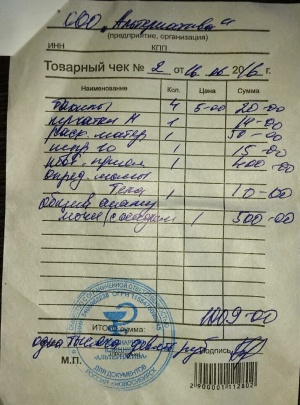 ООО "Альтернатива"
(предприятие, организация)
ИНН КПП
Товарный чек № 2 от 16 06 2016 г.
Наименование Кол. Цена Сумма
Бахилы 4 5-00 20-00
перчатки М 1 14-00
Расх. матер 1 50-00
шпр 10 1 15-00
1 400-00
Опред. массы
тела 1 10-00
общий анализ
мочи 1 500-00
ИТОГО сумма: 1009-00
одна тысяча девять руб Подпись
М.П.
ДЛЯ ДОКУМЕНТОВ
2900001112802